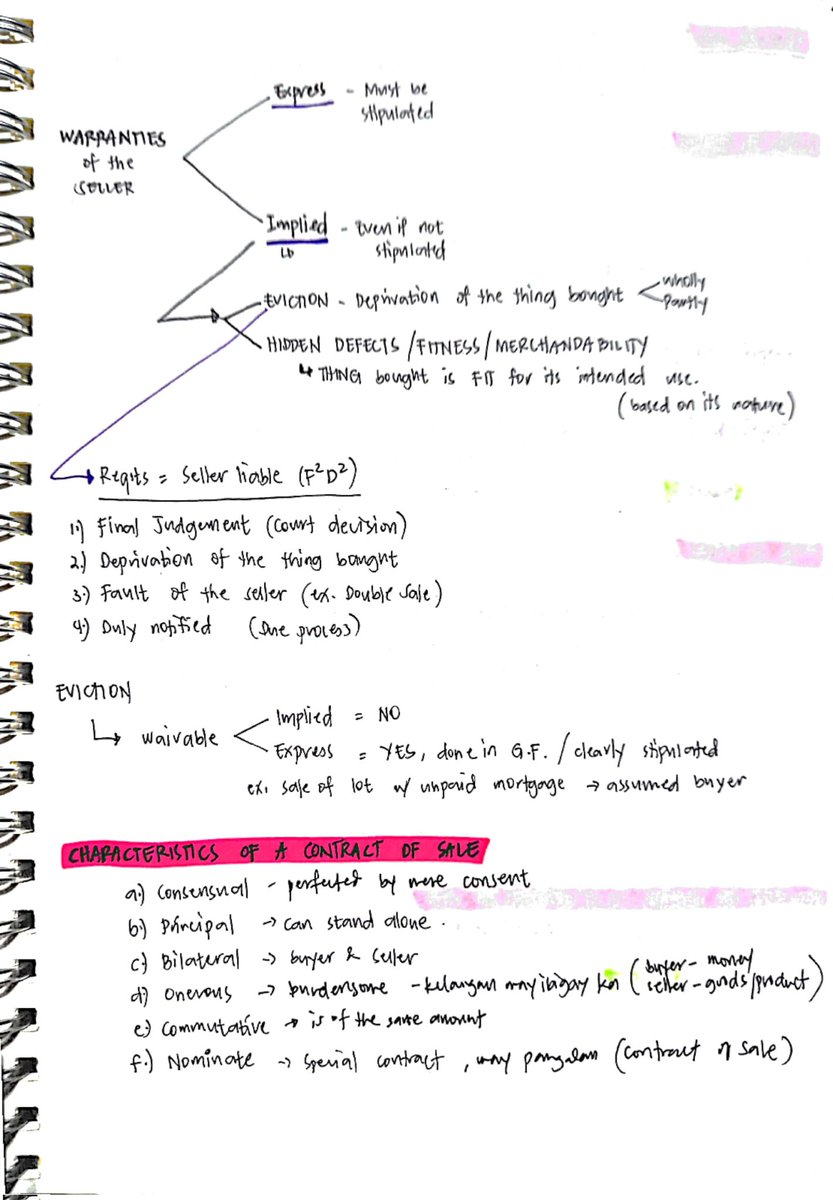 Express - Must be
stipulated
WARRANTIES
of the
SELLER
Implied - Even if not
stipulated
EVICTION - Deprivation of the thing bought < wholly
partly
HIDDEN DEFECTS / FITNESS / MERCHANDABILITY
↳ THING bought is FIT for its intended use.
(based on its nature)
→ Reqits = Seller liable (F²D²)
1.) Final Judgement (court decision)
2.) Deprivation of the thing bought
3.) Fault of the seller (ex. Double Sale)
4.) Duly notified (Due process)
EVICTION
↳ waivable < Implied = NO
Express = YES, done in G.F. / clearly stipulated
ex. sale of lot w/ unpaid mortgage → assumed buyer
CHARACTERISTICS OF A CONTRACT OF SALE
a.) Consensual - perfected by mere consent
b.) Principal → can stand alone.
c.) Bilateral → buyer & seller
d.) Onerous → burdensome - kelangan may ibigay ka (buyer - money
seller - goods/product)
e.) Commutative → is of the same amount
f.) Nominate → special contract, may pangalan (contract of sale)